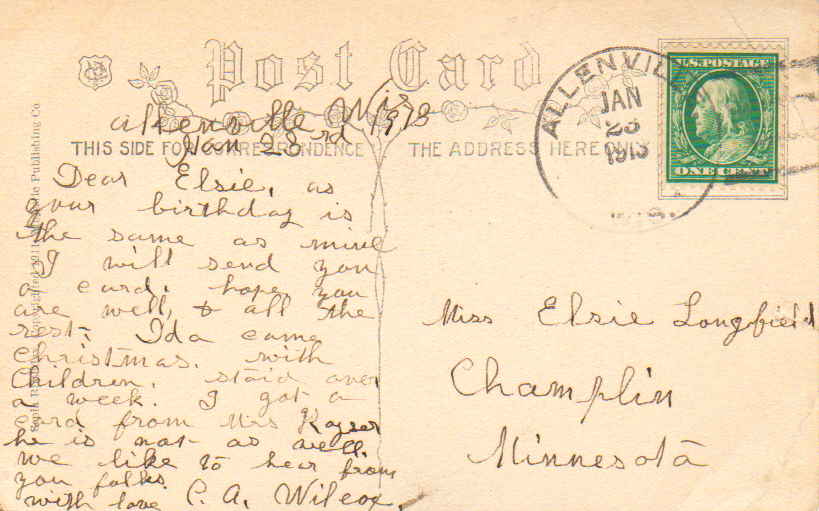 Post Card
THIS SIDE FOR CORRESPONDENCE
THE ADDRESS HERE ONLY
ALLENVIL
JAN
23
1913
WIS.
U.S. POSTAGE
ONE CENT
Allenville Wis
Jan 23rd 1913
Dear Elsie, as
your birthday is
the same as mine
I will send you
a card. hope you
are well, & all the
rest. Ida came
Christmas. with
Children. staid over
a week. I got a
card from Mrs Kayser
he is not as well.
we like to hear from
you folks.
with love C. A. Wilcox.
Miss Elsie Longfield
Champlin
Minnesota
Publishing Co